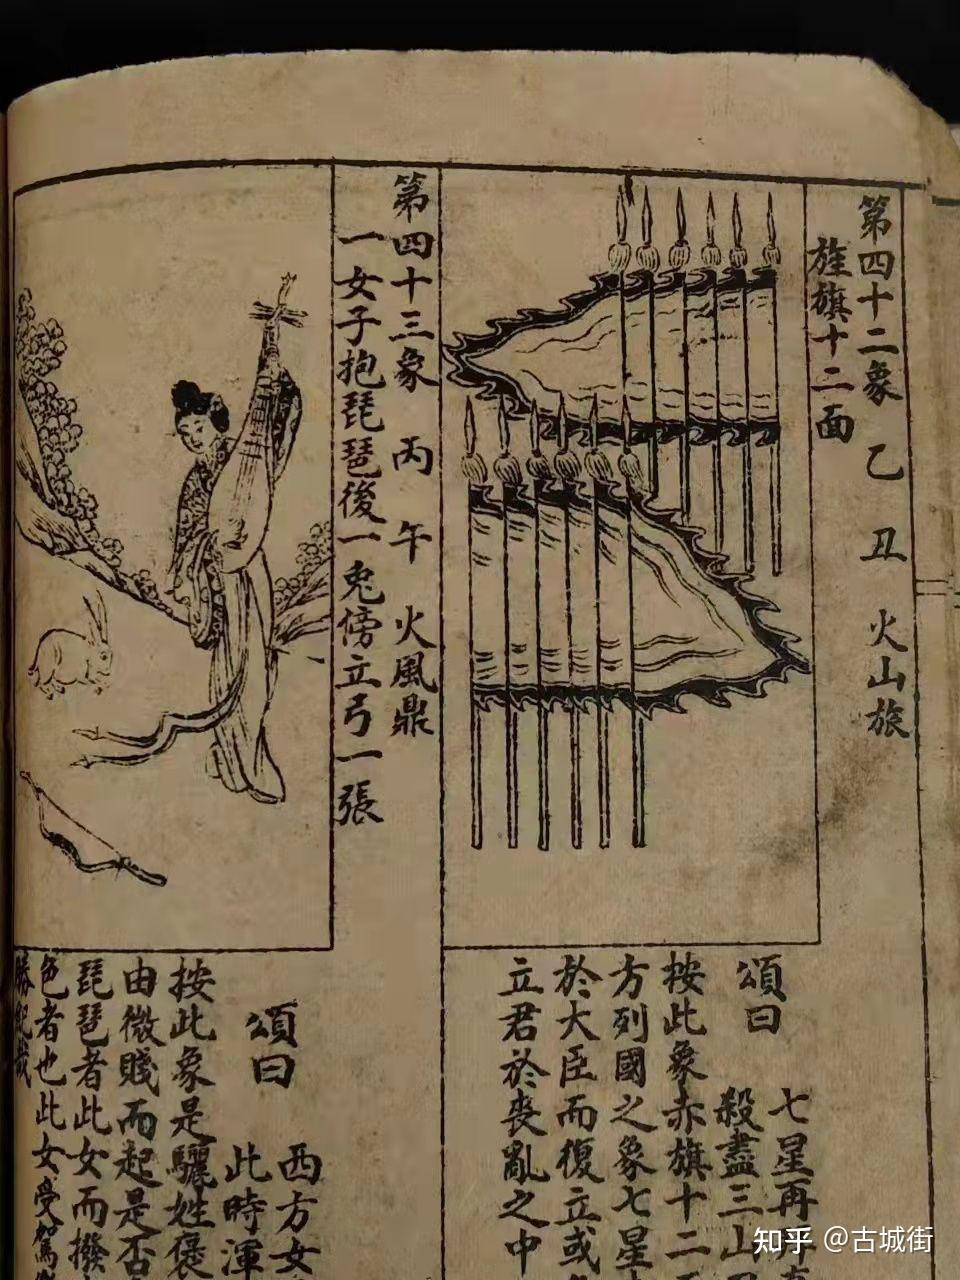 第四十二象 乙 丑 火山旅
旌旗十二面
頌曰
七星再
殺盡三山
按此象赤旗十二
方列國之象七星
於大臣而復立或
立君於喪亂之中
第四十三象 丙 午 火風鼎
一女子抱琵琶後一兔傍立弓一張
頌曰
西方女
此時渾
按此象是驪姓褒
由微賤而起是否
琵琶者此女而撥
色者也此女受
知乎 @古城街